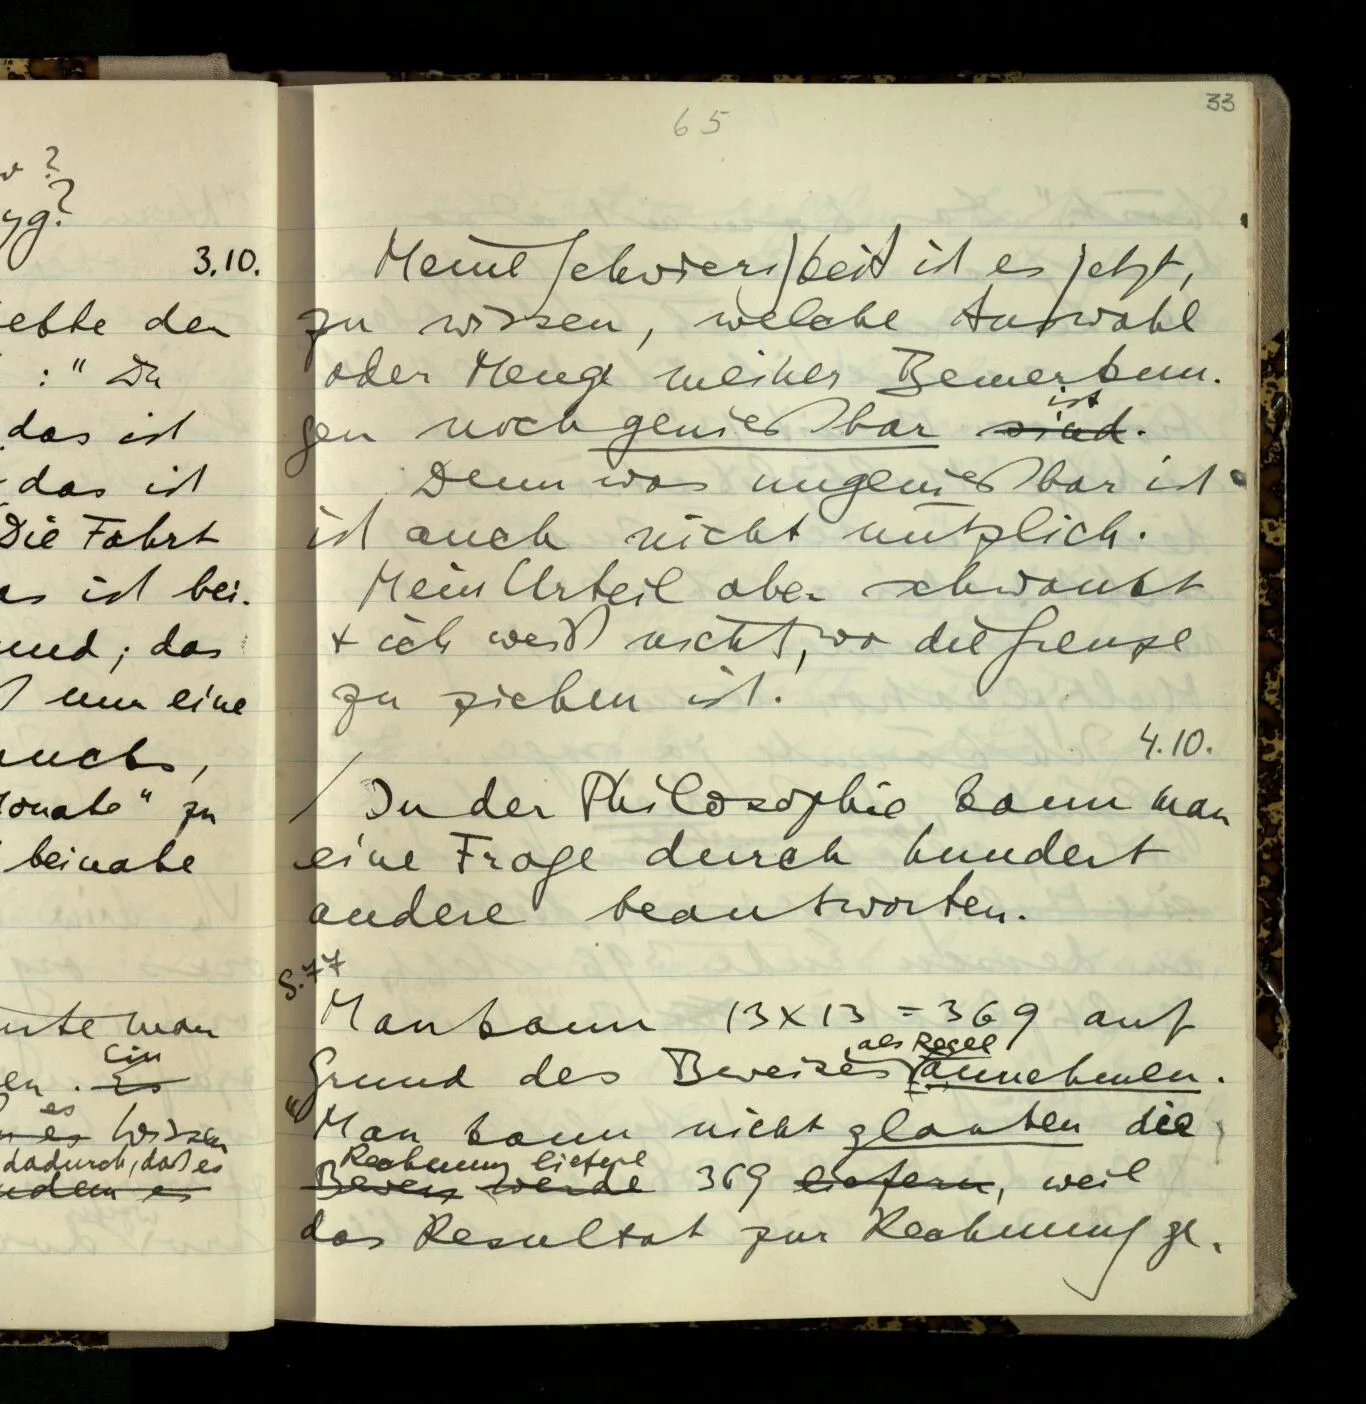 ?
yg?
3.10.
ebte den
:" Du
das ist
das ist
Die Fahrt
as ist bei-
und; das
nur eine
auchs,
Monate" zu
beinahe
man
Ein
en. Es
es
es wissen
dadurch, daß es
indem es
33
65
Meine Schwierigkeit ist es jetzt,
zu wissen, welche Auswahl
oder Menge meiner Bemerkun-
ist
gen noch genießbar sind.
Denn was ungenießbar ist
ist auch nicht nützlich.
Mein Urteil aber schwankt
+ ich weiß nicht, wo die Grenze
zu ziehen ist.
4.10.
/ In der Philosophie kann man
eine Frage durch hundert
andere beantworten.
S.77
Man kann 13×13 = 369 auf
als Regel
Grund des Beweises annehmen.
Man kann nicht glauben die
Rechnung liefere
Beweis werde 369 liefern, weil
das Resultat zur Rechnung ge-